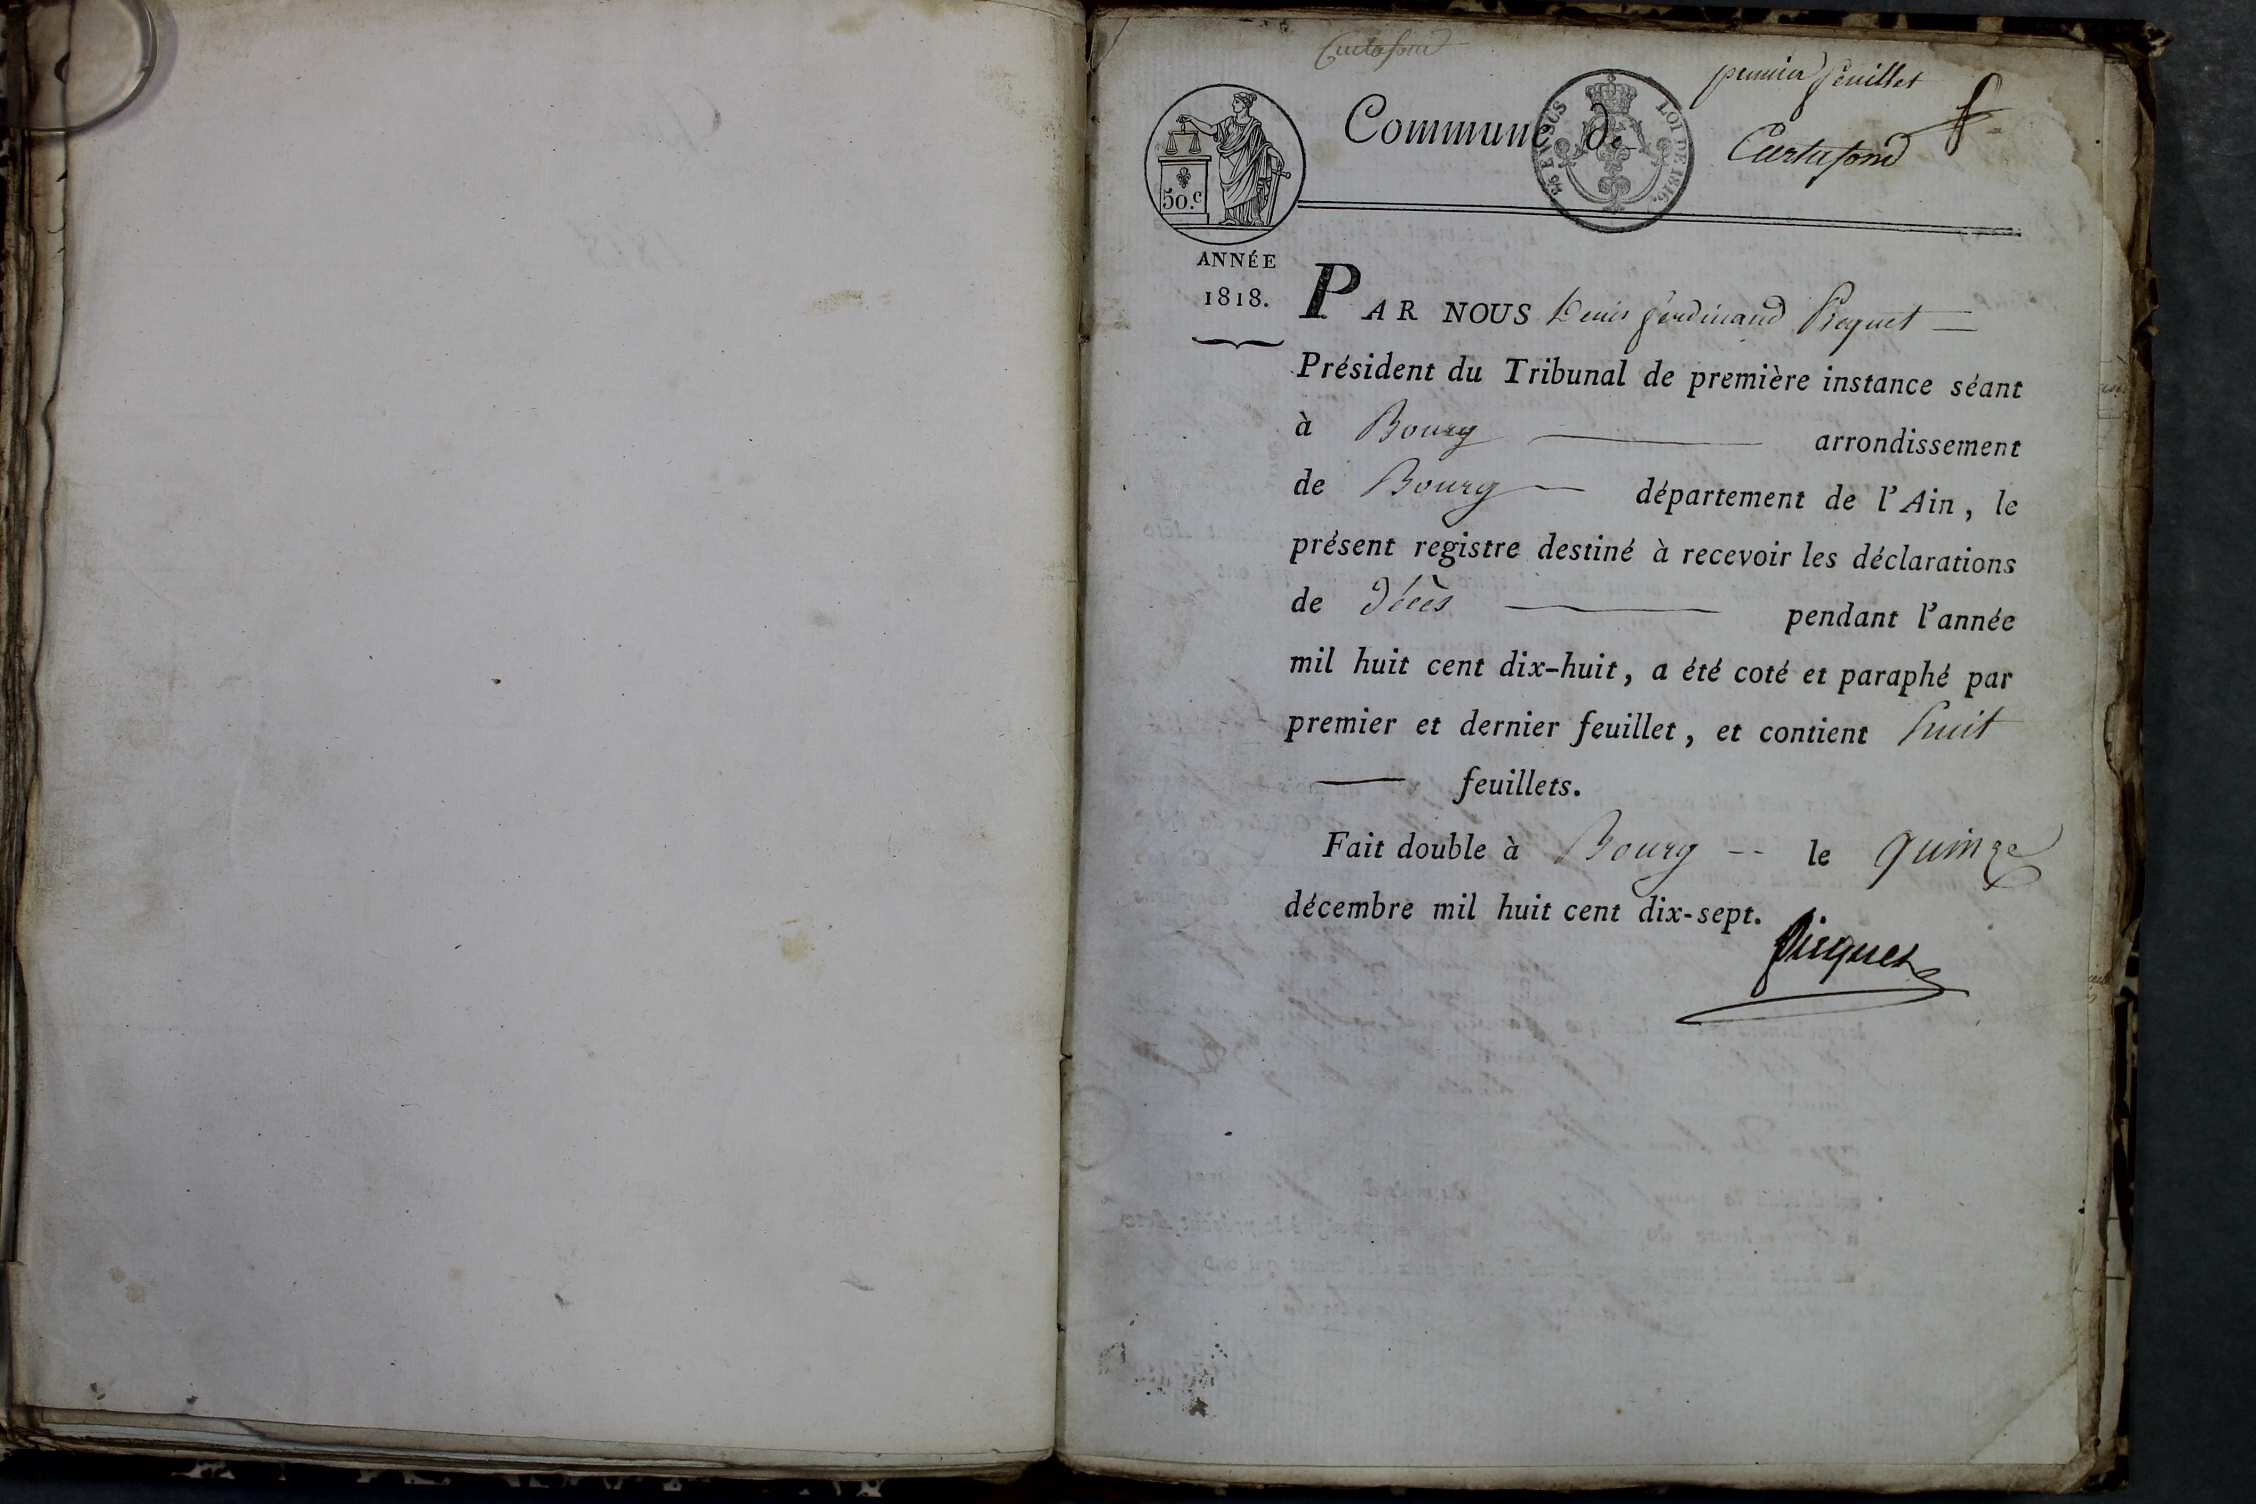 Curtafond
premier feuillet
Commune de Curtafond
50.c
EN SUS
LOI DE 1816.
ANNÉE
1818.
PAR NOUS Denis ferdinand Picquet
Président du Tribunal de première instance séant
à Bourg arrondissement
de Bourg département de l'Ain, le
présent registre destiné à recevoir les déclarations
de Décès pendant l'année
mil huit cent dix-huit, a été coté et paraphé par
premier et dernier feuillet, et contient huit
feuillets.
Fait double à Bourg -- le quinze
décembre mil huit cent dix-sept.
Picquet